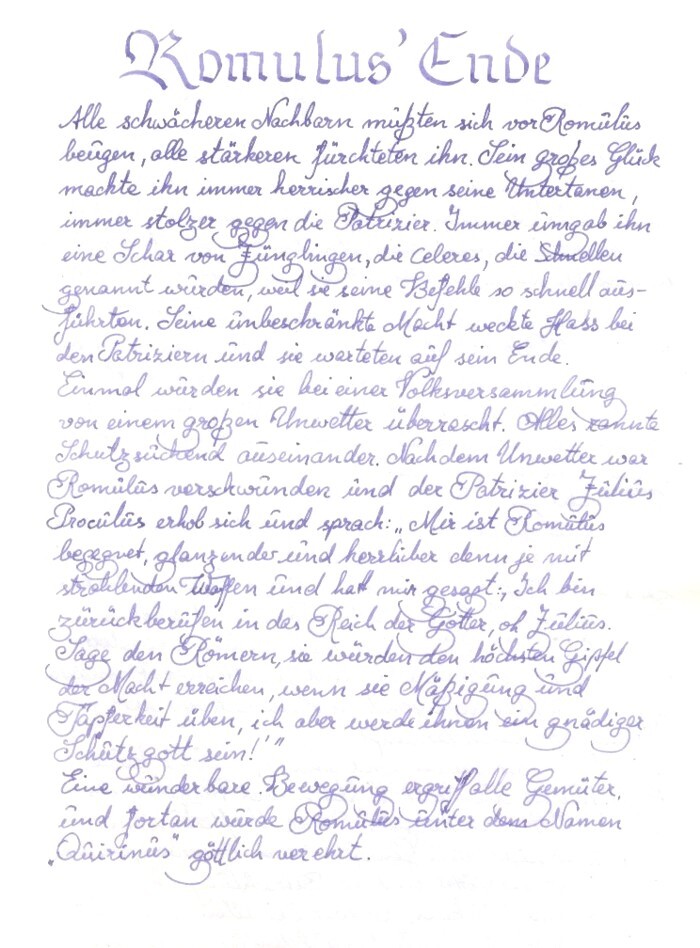 Romulus' Ende
Alle schwächeren Nachbarn mußten sich vor Romulus
beugen, alle stärkeren fürchteten ihn. Sein großes Glück
machte ihn immer herrischer gegen seine Untertanen,
immer stolzer gegen die Patrizier. Immer umgab ihn
eine Schar von Jünglingen, die Celeres, die Schnellen
genannt wurden, weil sie seine Befehle so schnell aus-
führten. Seine unbeschränkte Macht weckte Hass bei
den Patriziern und sie warteten auf sein Ende.
Einmal wurden sie bei einer Volksversammlung
von einem großen Unwetter überrascht. Alles rannte
Schutzsuchend auseinander. Nach dem Unwetter war
Romulus verschwunden und der Patrizier Julius
Proculus erhob sich und sprach: „Mir ist Romulus
begegnet, glanzender und herrlicher denn je mit
strahlenden Waffen und hat mir gesagt: ‚Ich bin
zurückberufen in das Reich der Götter, oh Julius.
Sage den Römern, sie würden den höchsten Gipfel
der Macht erreichen, wenn sie Mäßigung und
Tapferkeit üben, ich aber werde ihnen ein gnädiger
Schutzgott sein!' "
Eine wunderbare Bewegung ergriff alle Gemüter,
und fortan wurde Romulus unter dem Namen
„Quirinus" göttlich verehrt.